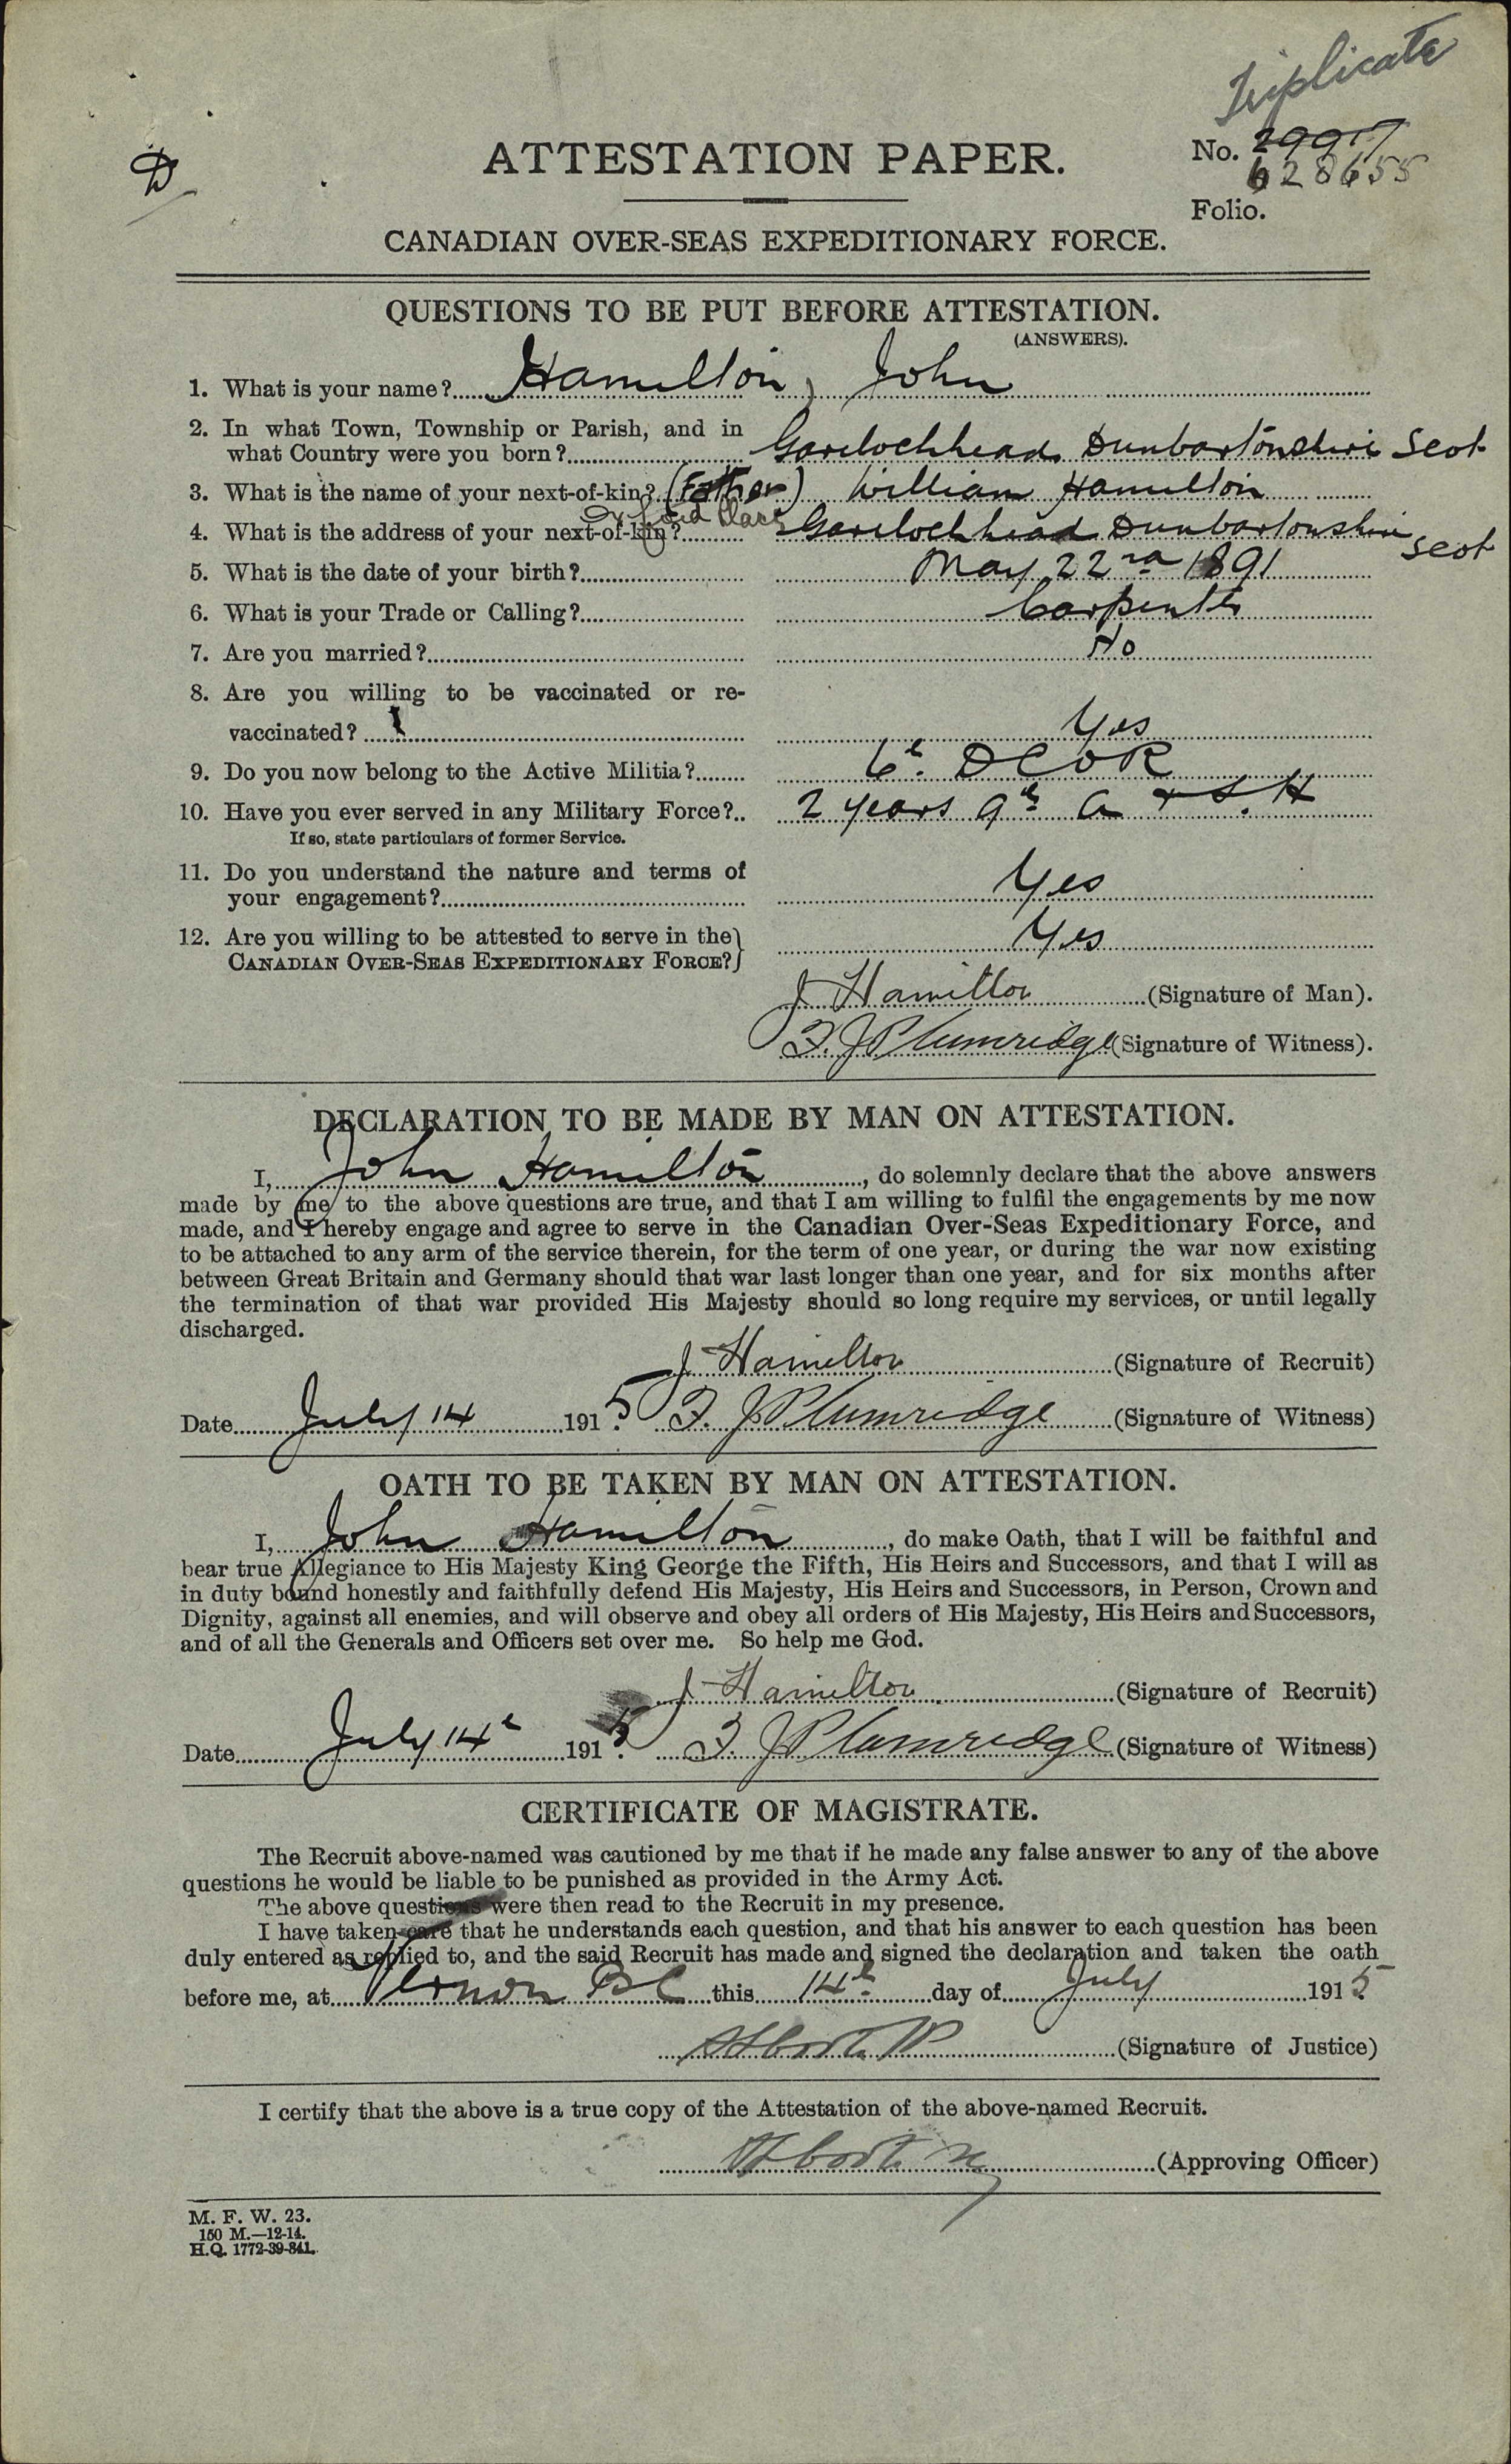 Triplicate
ATTESTATION PAPER.
No. 29917
628655
Folio.
D
CANADIAN OVER-SEAS EXPEDITIONARY FORCE.
QUESTIONS TO BE PUT BEFORE ATTESTATION.
(ANSWERS).
1. What is your name? Hamilton, John
2. In what Town, Township or Parish, and in
what Country were you born? Garelochhead Dunbartonshire Scot
3. What is the name of your next-of-kin? (Father) William Hamilton
Oxford Place
4. What is the address of your next-of-kin? Garelochhead Dunbartonshire Scot
5. What is the date of your birth? May 22nd 1891
6. What is your Trade or Calling? Carpenter
7. Are you married? No
8. Are you willing to be vaccinated or re-
vaccinated? Yes
9. Do you now belong to the Active Militia? 6th DCOR
10. Have you ever served in any Military Force? 2 years 9th A & S. H
If so, state particulars of former Service.
11. Do you understand the nature and terms of
your engagement? Yes
12. Are you willing to be attested to serve in the
CANADIAN OVER-SEAS EXPEDITIONARY FORCE? Yes
J Hamilton (Signature of Man).
F. J Plumridge (Signature of Witness).
DECLARATION TO BE MADE BY MAN ON ATTESTATION.
I, John Hamilton, do solemnly declare that the above answers
made by me to the above questions are true, and that I am willing to fulfil the engagements by me now
made, and I hereby engage and agree to serve in the Canadian Over-Seas Expeditionary Force, and
to be attached to any arm of the service therein, for the term of one year, or during the war now existing
between Great Britain and Germany should that war last longer than one year, and for six months after
the termination of that war provided His Majesty should so long require my services, or until legally
discharged.
J Hamilton (Signature of Recruit)
Date July 14 1915. F. J Plumridge (Signature of Witness)
OATH TO BE TAKEN BY MAN ON ATTESTATION.
I, John Hamilton, do make Oath, that I will be faithful and
bear true Allegiance to His Majesty King George the Fifth, His Heirs and Successors, and that I will as
in duty bound honestly and faithfully defend His Majesty, His Heirs and Successors, in Person, Crown and
Dignity, against all enemies, and will observe and obey all orders of His Majesty, His Heirs and Successors,
and of all the Generals and Officers set over me. So help me God.
J Hamilton (Signature of Recruit)
Date July 14th 1915. F. J Plumridge (Signature of Witness)
CERTIFICATE OF MAGISTRATE.
The Recruit above-named was cautioned by me that if he made any false answer to any of the above
questions he would be liable to be punished as provided in the Army Act.
The above questions were then read to the Recruit in my presence.
I have taken care that he understands each question, and that his answer to each question has been
duly entered as replied to, and the said Recruit has made and signed the declaration and taken the oath
before me, at Vernon BC this 14th day of July 1915
(Signature of Justice)
I certify that the above is a true copy of the Attestation of the above-named Recruit.
(Approving Officer)
M. F. W. 23.
150 M.—12-14.
H.Q. 1772-39-841.